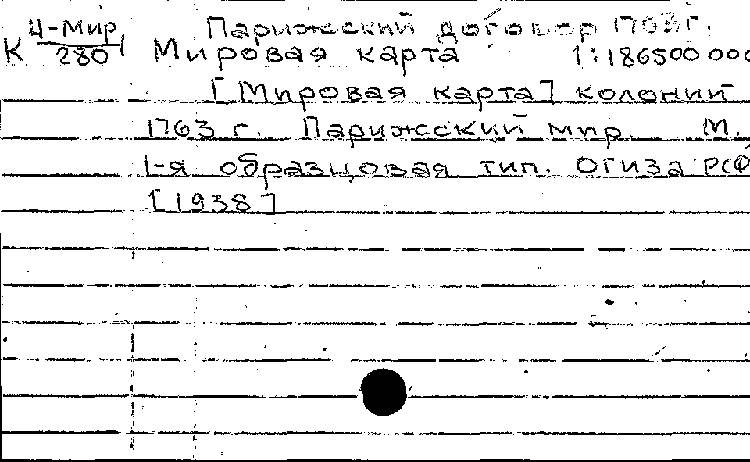 Парижский договор 1763г.
К 4-Мир/280 Мировая карта 1:186500 000
[Мировая карта] колоний
1763 г. Парижский мир. М.,
1-я образцовая тип. Огиза РСФ
[1938]